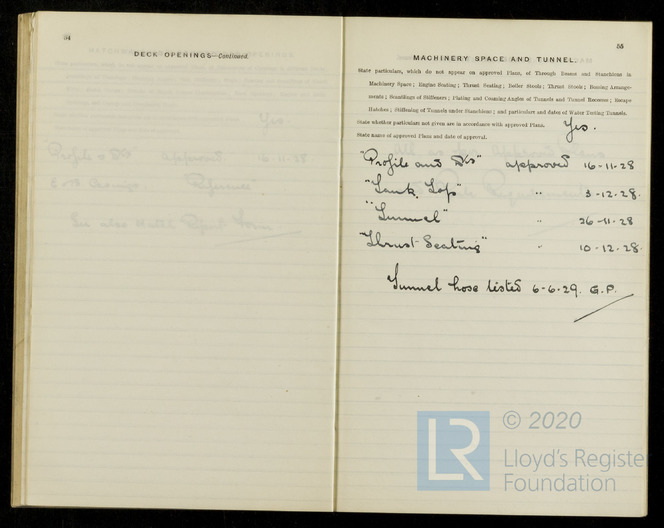 54
DECK OPENINGS—Continued.
55
MACHINERY SPACE AND TUNNEL.
State particulars, which do not appear on approved Plans, of Through Beams and Stanchions in
Machinery Space; Engine Seating; Thrust Seating; Boiler Stools; Thrust Stools; Bossing Arrange-
ments; Scantlings of Stiffeners; Plating and Coaming Angles of Tunnels and Tunnel Recesses; Escape
Hatches; Stiffening of Tunnels under Stanchions; and particulars and dates of Water Testing Tunnels.
State whether particulars not given are in accordance with approved Plans. Yes.
State name of approved Plans and date of approval.
"Profile and Dks" approved 16-11-28
"Tank Top" " 3-12-28.
"Tunnel" " 26-11-28
"Thrust Seating" " 10-12-28.
Tunnel hose tested 6-6-29. G.P.
LR
© 2020
Lloyd's Register
Foundation